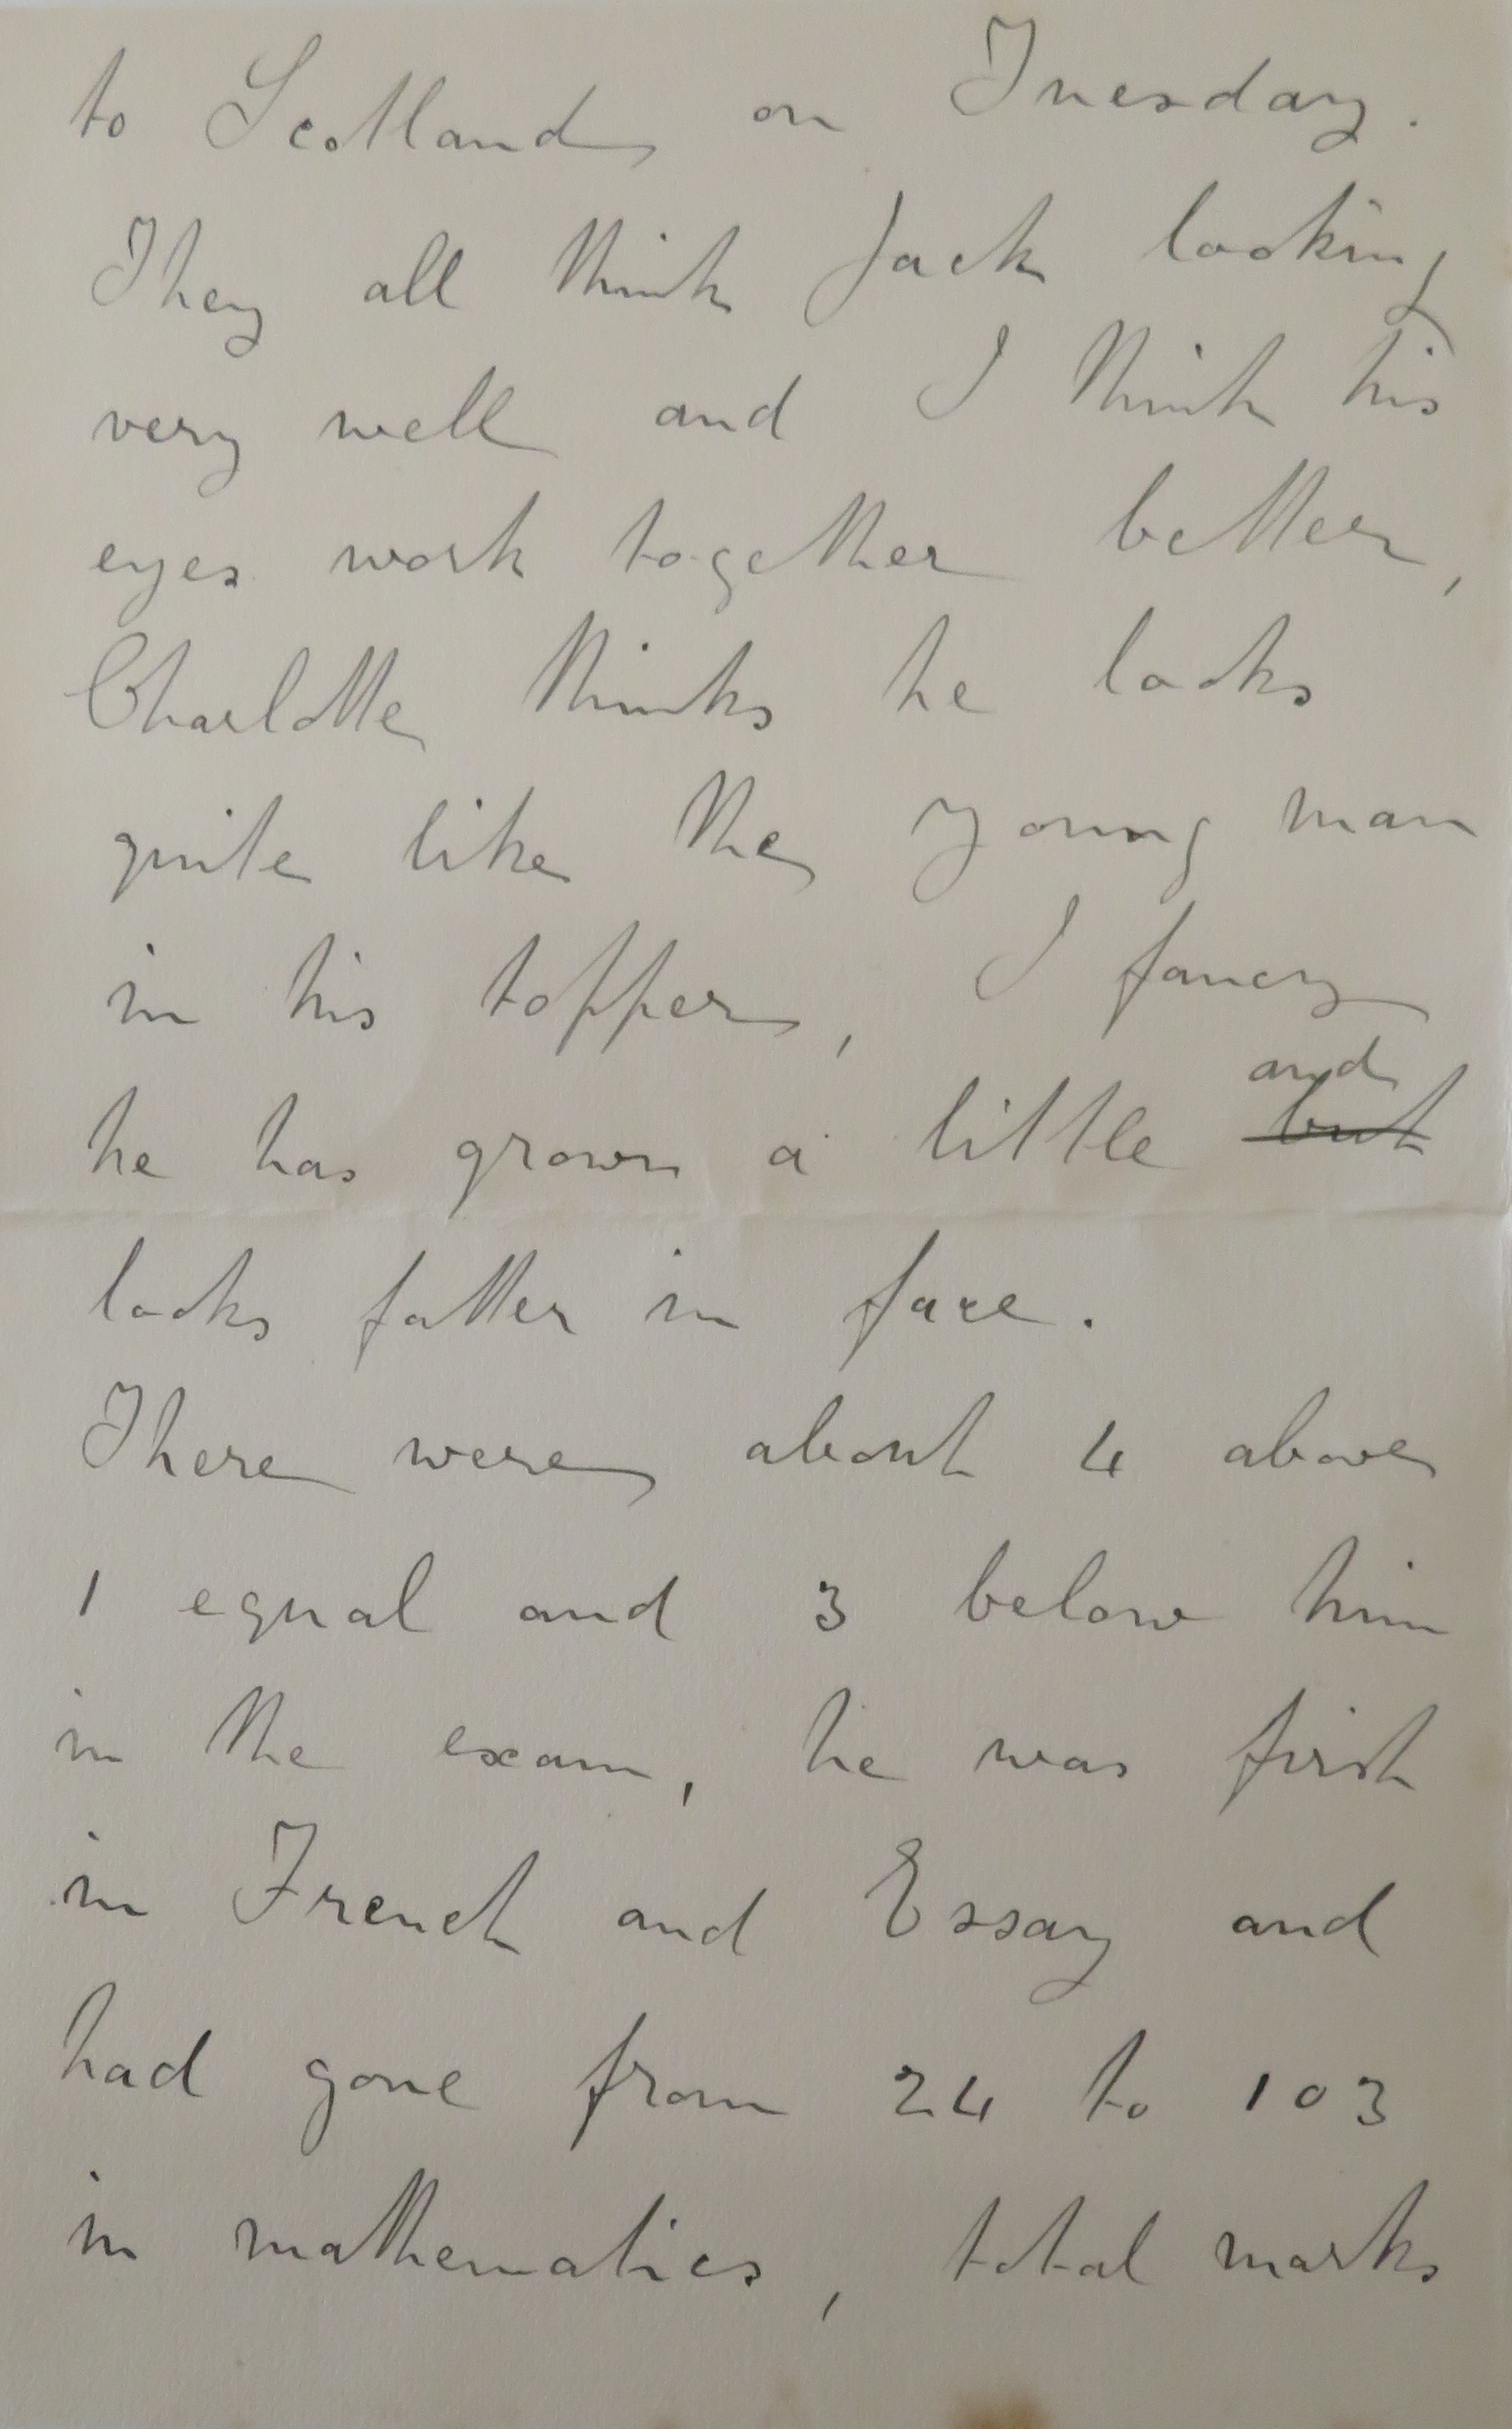 to Scotland on Tuesday.
They all think Jack looking
very well and I think his
eyes work together better,
Charlotte thinks he looks
quite like the young man
in his topper, I fancy
he has grown a little but and
looks fatter in face.
There were about 4 above
1 equal and 3 below him
in the exam, he was first
in French and Essay and
had gone from 24 to 103
in mathematics, total marks